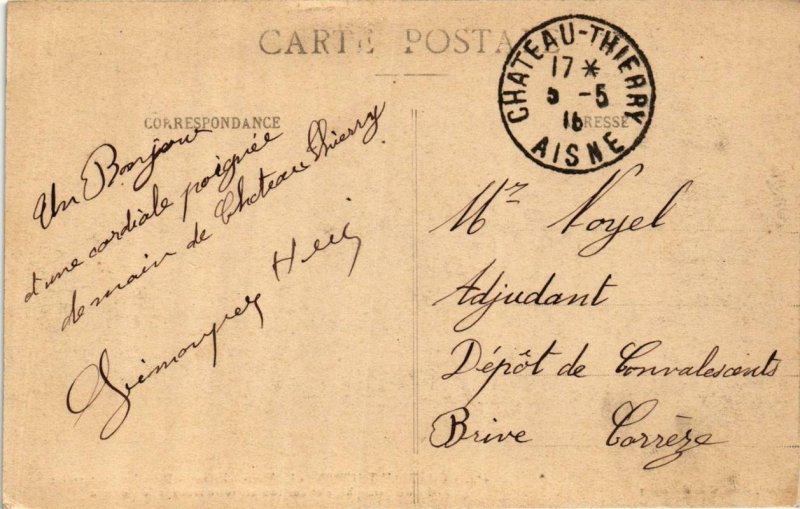 CARTE POSTALE
CHATEAU-THIERRY
17 *
5 -5
16
AISNE
CORRESPONDANCE
ADRESSE
Un Bonjour
d'une cordiale poignée
de main de Chateau Thierry
Mr Noyel
Adjudant
Dépôt de Convalescents
Brive Corrèze